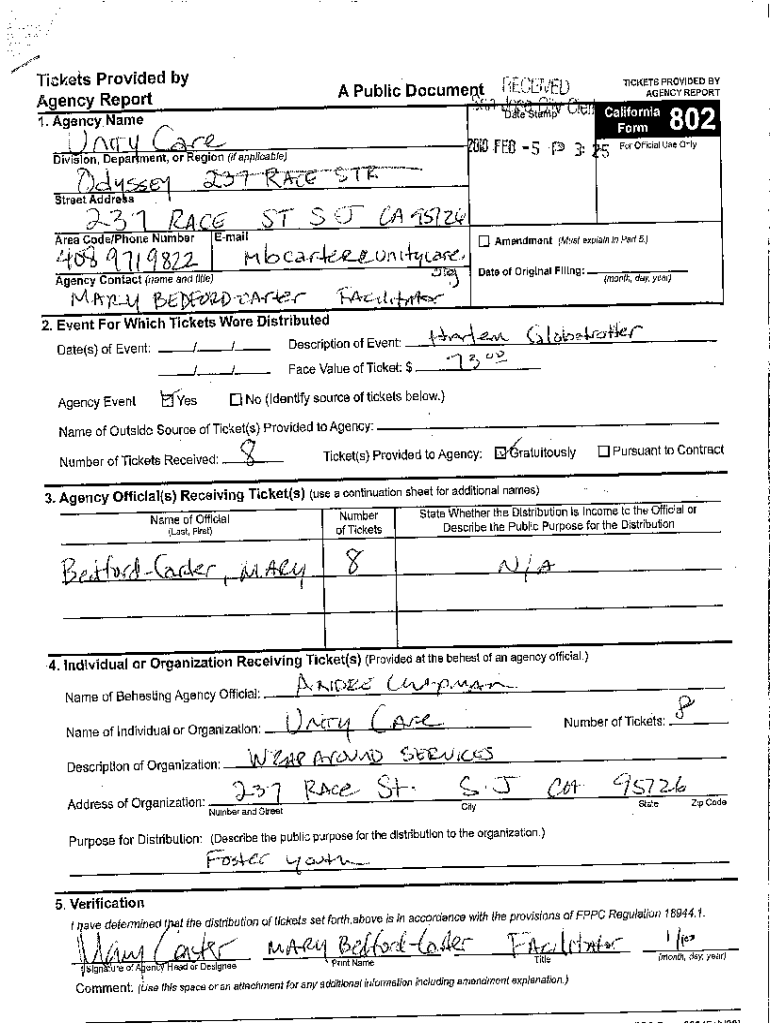 Tickets Provided by
Agency Report
A Public Document
RECEIVED
San Jose City Clerk
TICKETS PROVIDED BY
AGENCY REPORT
1. Agency Name
Unity Care
Date Stamp
California
Form 802
Division, Department, or Region (if applicable)
2010 FEB -5 P 3: 25
For Official Use Only
Odyssey 237 RACE STR
Street Address
237 RACE ST SJ CA 95726
Area Code/Phone Number E-mail
408 9719822 mbcarter@unitycare.org
Amendment (Must explain in Part 5.)
Agency Contact (name and title)
Date of Original Filing:
(month, day, year)
MARY BEDFORD-Carter Facilitator
2. Event For Which Tickets Were Distributed
Date(s) of Event: / / Description of Event: Harlem Globetrotter
/ / Face Value of Ticket: $ 73.00
Agency Event Yes No (Identify source of tickets below.)
Name of Outside Source of Ticket(s) Provided to Agency:
Number of Tickets Received: 8 Ticket(s) Provided to Agency: Gratuitously Pursuant to Contract
3. Agency Official(s) Receiving Ticket(s) (use a continuation sheet for additional names)
Name of Official
(Last, First)
Number
of Tickets
State Whether the Distribution is Income to the Official or
Describe the Public Purpose for the Distribution
Bedford-Carter, MARY 8 N/A
4. Individual or Organization Receiving Ticket(s) (Provided at the behest of an agency official.)
Name of Behesting Agency Official: ANDRE Chapman
Name of Individual or Organization: Unity Care Number of Tickets: 8
Description of Organization: WRAP AROUND SERVICES
Address of Organization: 237 RACE St. S.J CA 95726
Number and Street City State Zip Code
Purpose for Distribution: (Describe the public purpose for the distribution to the organization.)
Foster youth
5. Verification
I have determined that the distribution of tickets set forth above is in accordance with the provisions of FPPC Regulation 18944.1.
Mary Carter MARY Bedford-Carter Facilitator
Signature of Agency Head or Designee Print Name Title (month, day, year)
Comment: (Use this space or an attachment for any additional information including amendment explanation.)